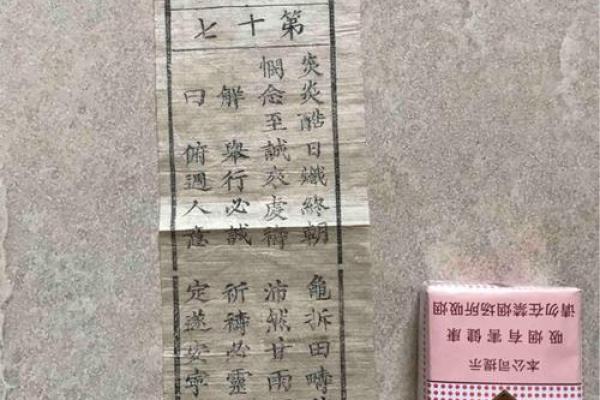 第十七
炎炎酷日熾終朝 龜拆田疇
憫念至誠哀虔禱 沛然甘雨
解曰
舉行必誠 祈禱必靈
俯週人意 定遂安寧
本公司提示
吸烟有害健康
请勿在禁烟场所吸烟